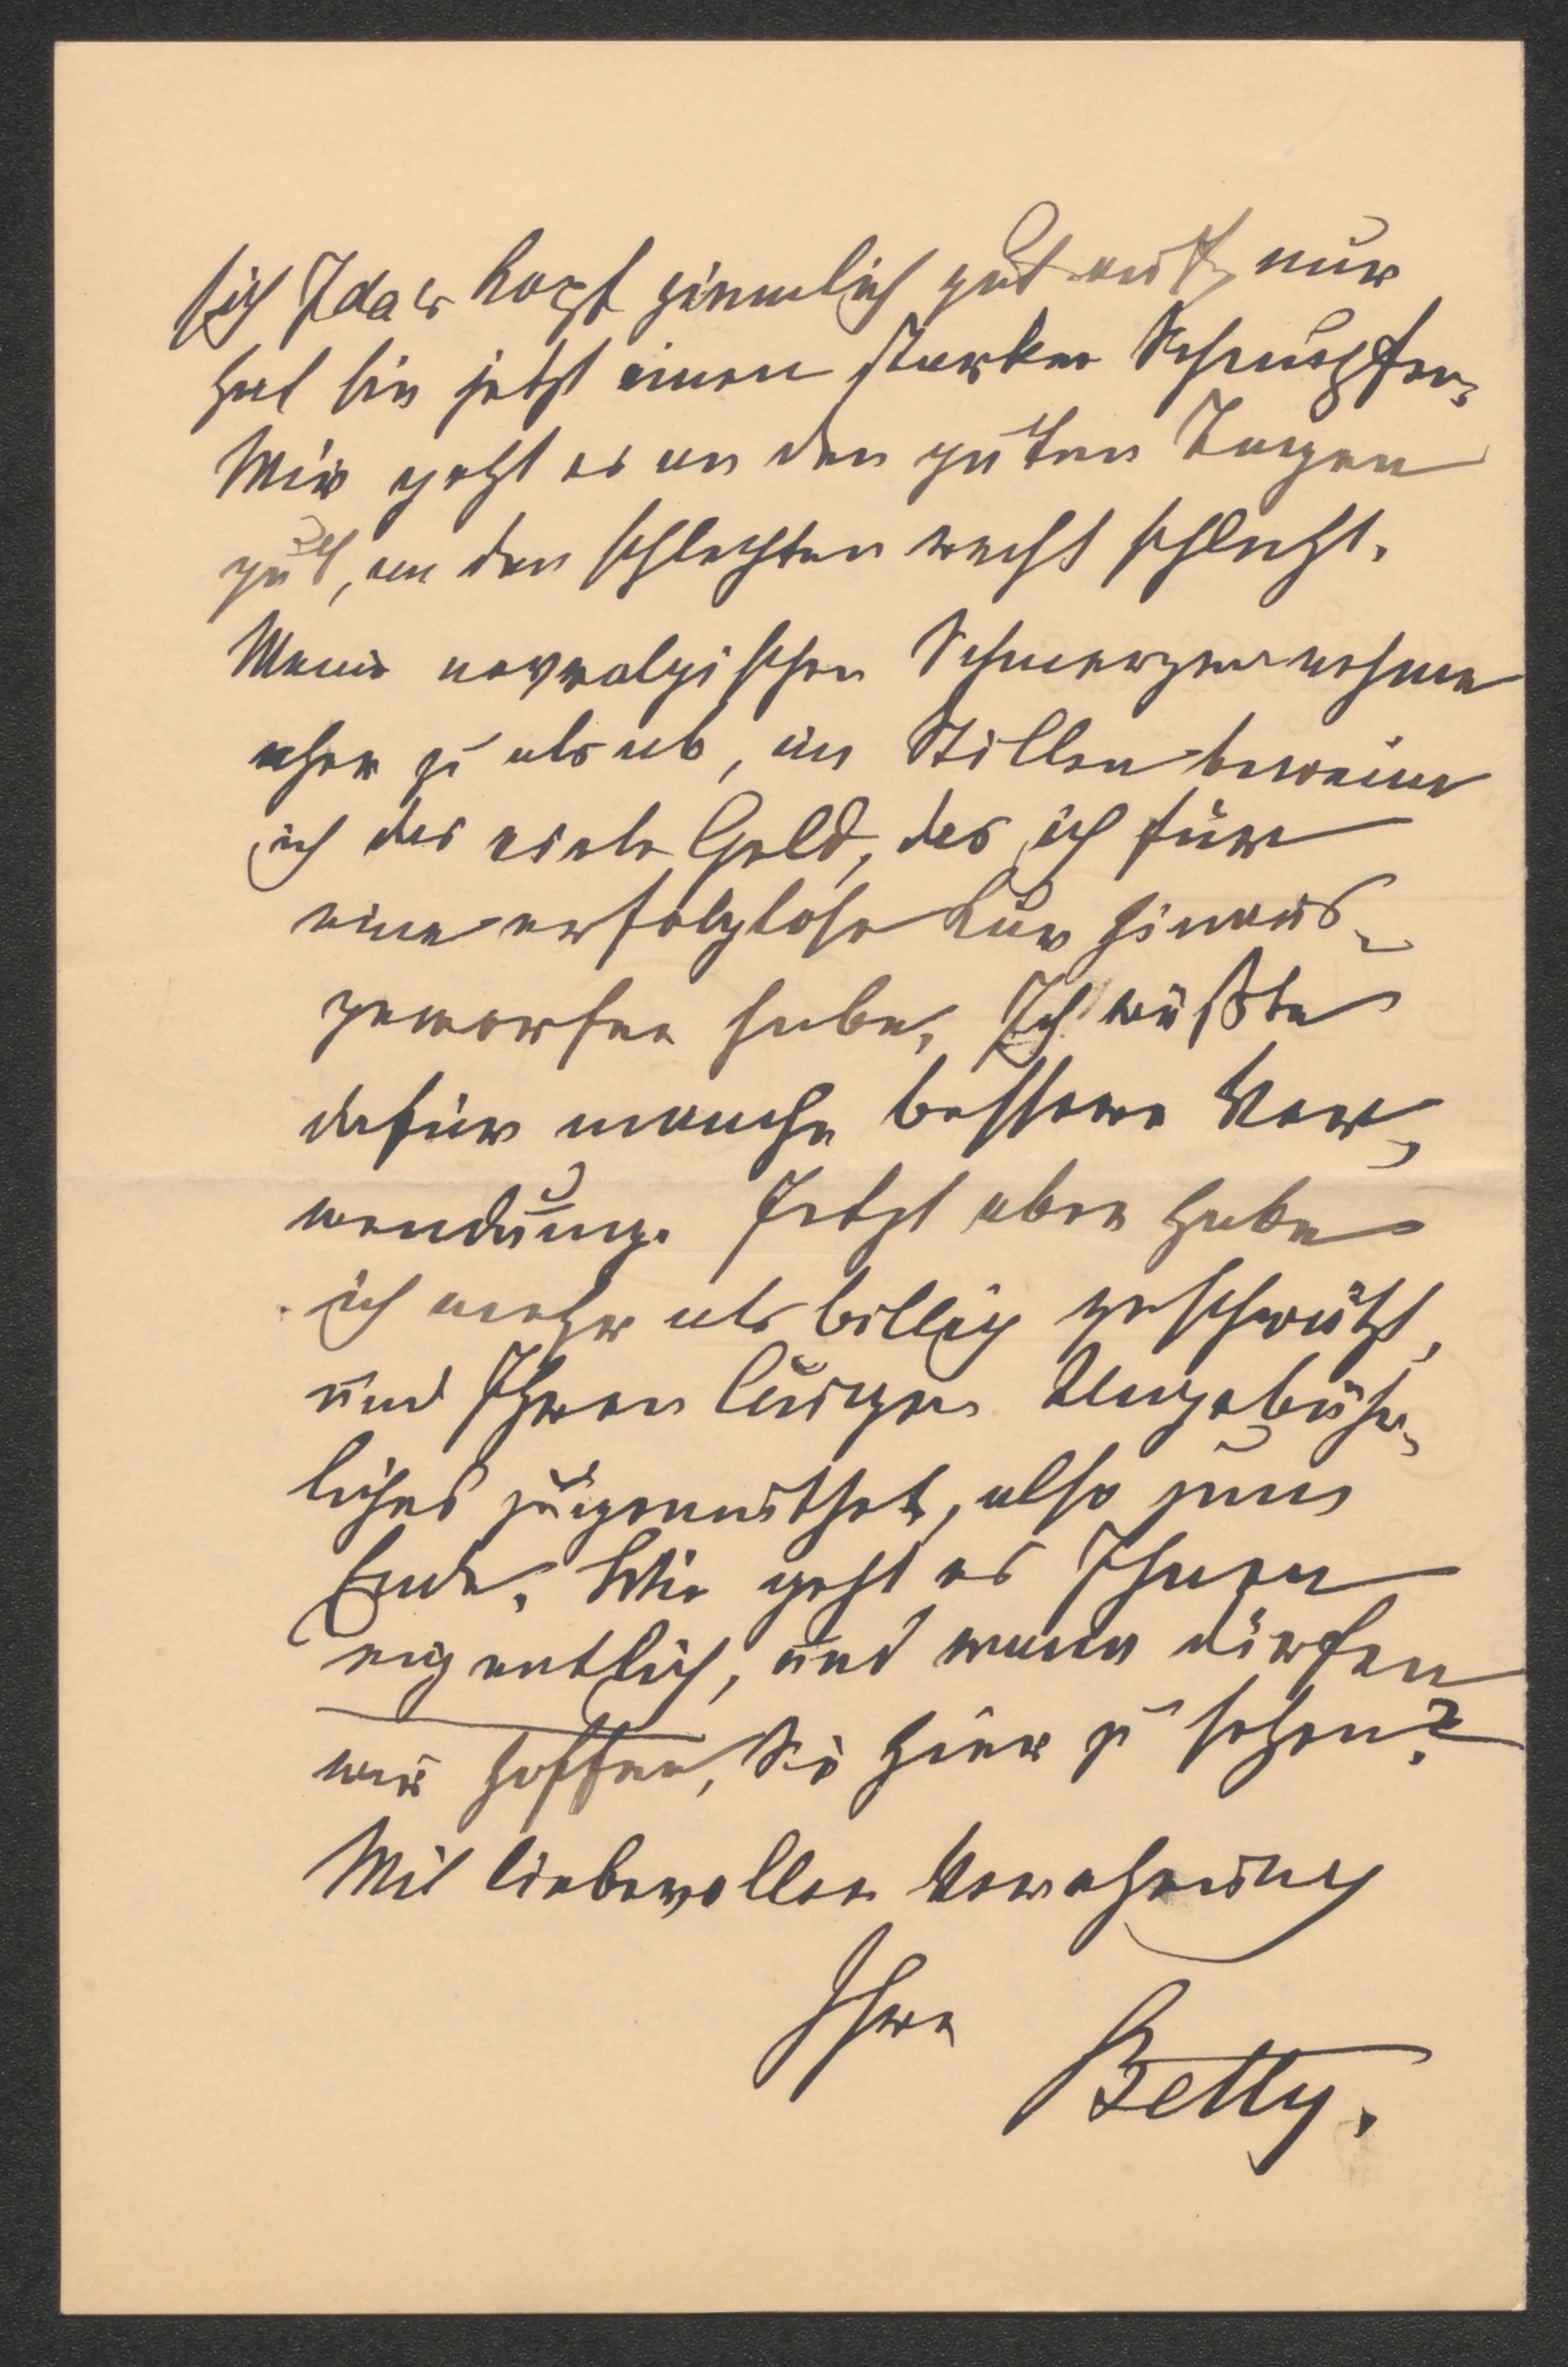 sich Ida's Kopf ziemlich gut aus, nur
hat sie jetzt einen starken Schnupfen.
Mir geht es an den guten Tagen
gut, an den schlechten recht schlecht.
Meine nevralgischen Schmerzen nehmen
eher zu als ab, im Stillen beweine
ich das viele Geld, das ich für
eine erfolglose Kur hinaus-
geworfen habe. Ich wüßte
dafür manche bessere Ver-
wendung. Jetzt aber habe
ich mehr als billig geschwätzt,
und Ihren Augen Ungebühr-
liches zugemuthet, also zum
Ende. Wie geht es Ihnen
eigentlich, und wann dürfen
wir hoffen, Sie hier zu sehen?
Mit liebevoller Verehrung
Ihre
Betty.